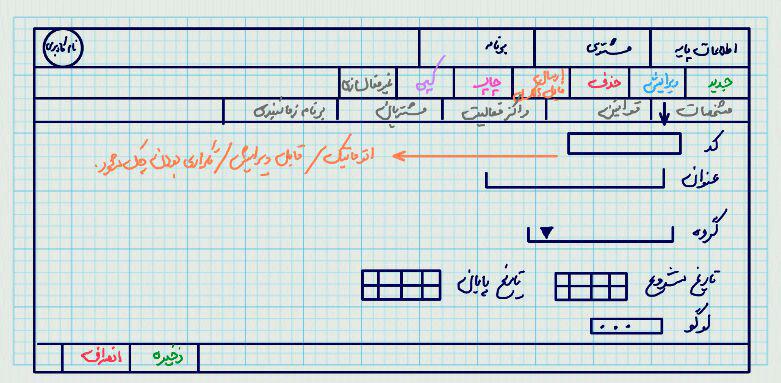 اطلاعات پایه مشتری برنامه نام کاربری
جدید ویرایش حذف ارسال فایل چاپ کپی غیرفعالسازی
مشخصات قوانین مراکز فعالیت مشتریان برنامه زمانبندی
کد
اتوماتیک / قابل ویرایش / تکراری بودن چک شود.
عنوان
گروه
تاریخ شروع تاریخ پایان
لوگو ...
ذخیره انصراف